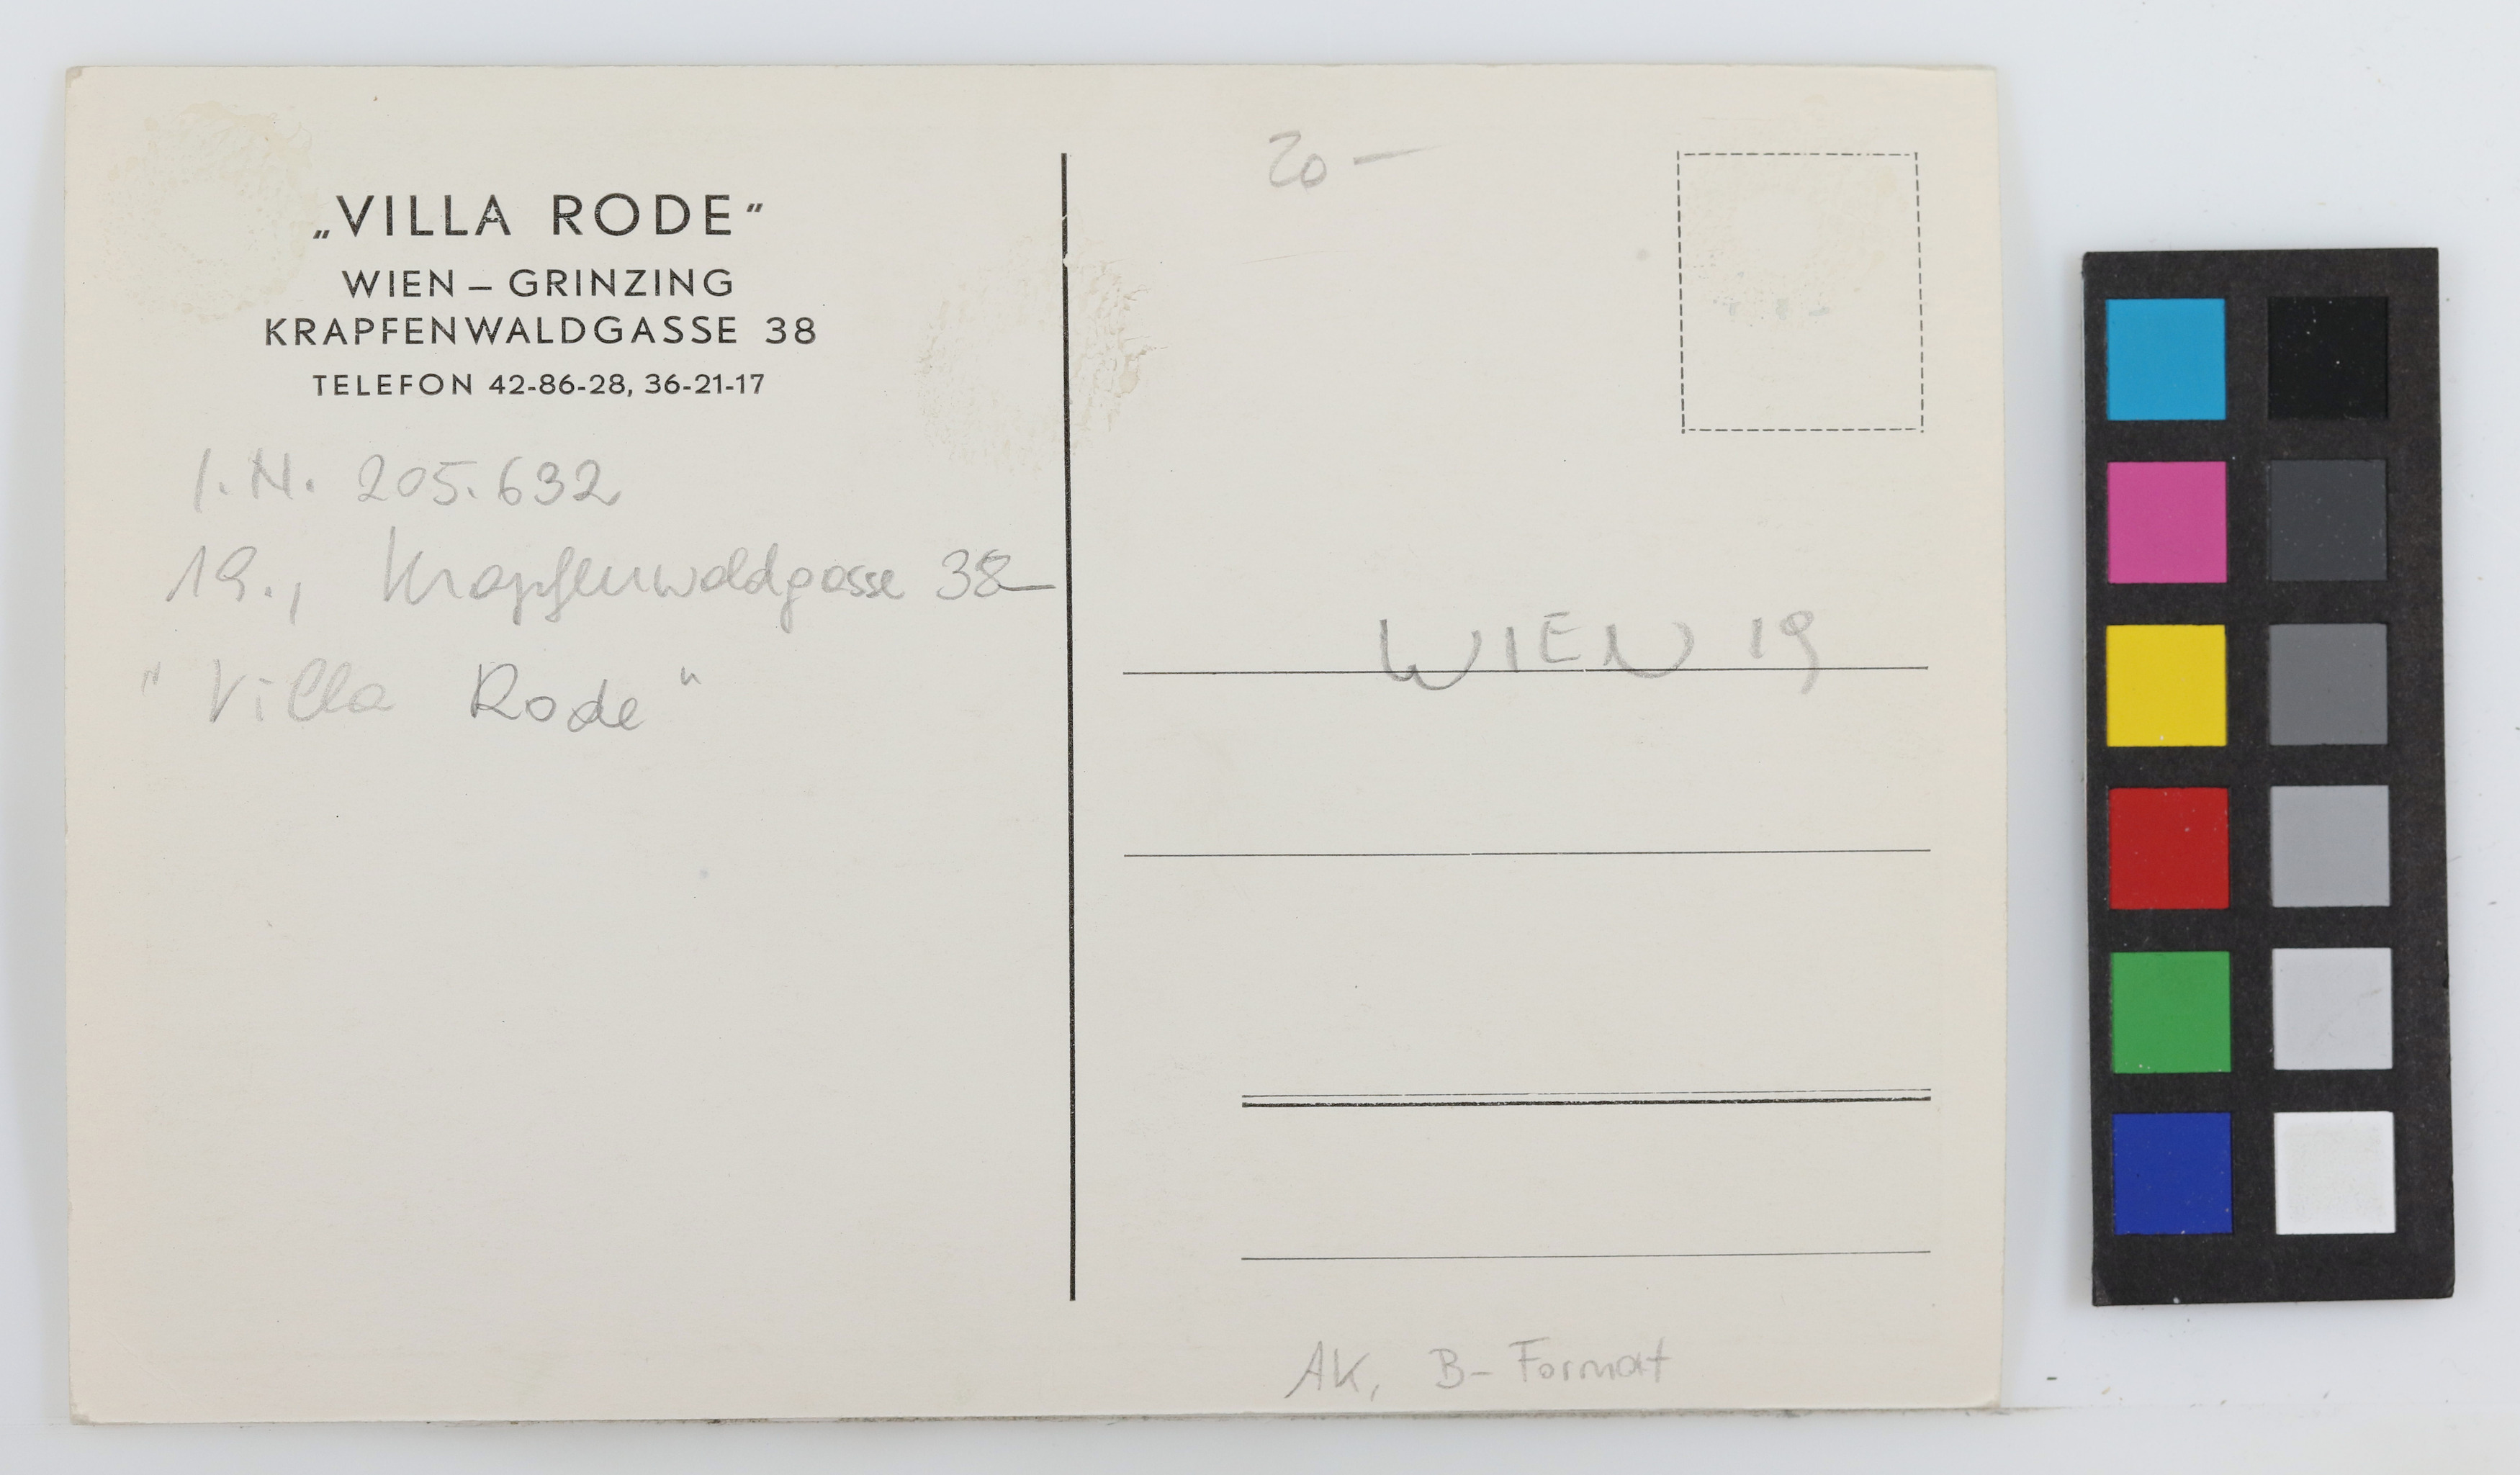 „VILLA RODE“
WIEN – GRINZING
KRAPFENWALDGASSE 38
TELEFON 42-86-28, 36-21-17
I.N. 205.632
19., Krapfenwaldgasse 38
"Villa Rode"
20 —
WIEN 19
AK, B-Format